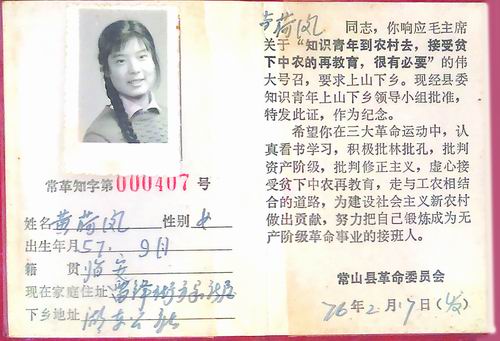 常革知字第000407号
姓名 黄荷凤 性别 女
出生年月 57. 9月
籍 贯 临安
现在家庭住址
下乡地址
黄荷凤 同志，你响应毛主席
关于“知识青年到农村去，接受贫
下中农的再教育，很有必要”的伟
大号召，要求上山下乡。现经县委
知识青年上山下乡领导小组批准，
特发此证，作为纪念。
希望你在三大革命运动中，认
真看书学习，积极批林批孔，批判
资产阶级，批判修正主义，虚心接
受贫下中农再教育，走与工农相结
合的道路，为建设社会主义新农村
做出贡献，努力把自己锻炼成为无
产阶级革命事业的接班人。
常山县革命委员会
76年2月17日